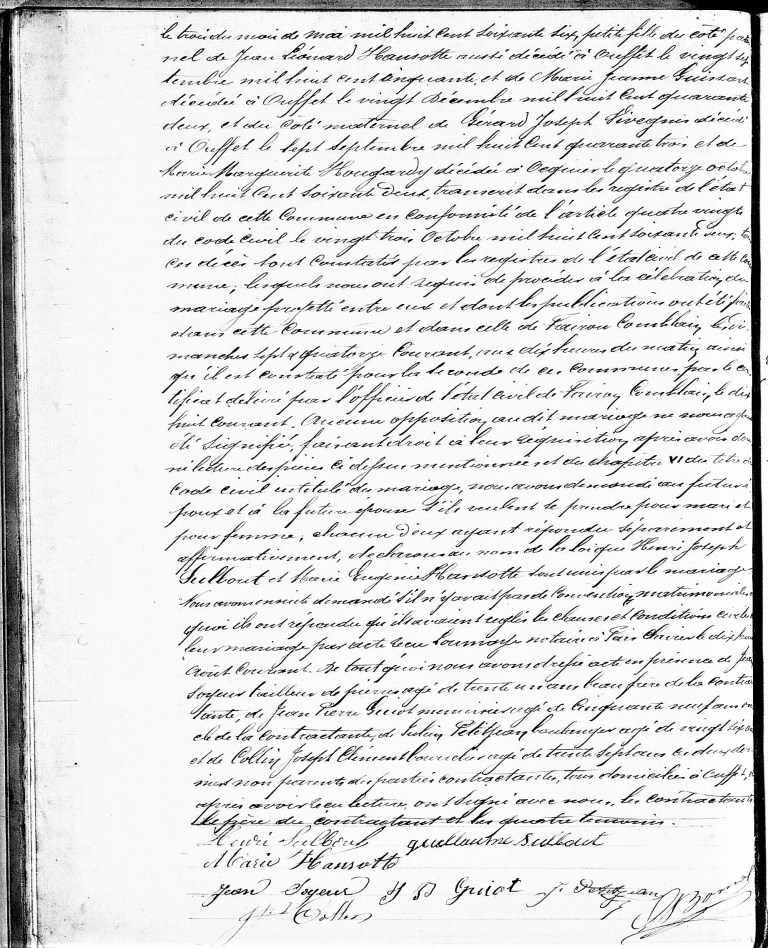 le trois du mois de mai mil huit cent soixante six, petite fille du côté pater
nel de Jean Léonard Hansotte aussi décédé à Ouffet le vingt sep
tembre mil huit cent cinquante, et de Marie Jeanne Guissart
décédée à Ouffet le vingt Décembre mil huit cent quarante
deux, et du côté maternel de Gérard Joseph Sévegnis décédé
à Ouffet le sept septembre mil huit cent quarante trois et de
Marie Marguerite Hougardy décédée à Ocquier le quatorze octobre
mil huit cent soixante deux, transcrit dans les registre de l'état
civil de cette Commune en conformité de l'article quatre vingts
du code civil le vingt trois Octobre mil huit cent soixante deux, tous
ces décès sont constatés par les registres de l'état civil de cette com
mune; lesquels nous ont requis de procéder à la célébration du
mariage projetté entre eux et dont les publications ont été faites
dans cette Commune et dans celle de Fairon Comblain les di
manches sept & quatorze Courant, aux dix heures du matin ainsi
qu'il est constaté pour la seconde de ces communes par le cer
tificat délivré par l'officier de l'état civil de Fairon Comblain le dix
huit courant. Aucune opposition au dit mariage ne nous ayant
été signifiée, faisant droit à leur réquisition, après avoir don
né lecture des pièces ci dessus mentionnées et du chapitre VI du titre du
Code civil intitulé du mariage, nous avons demandé au futur é
poux et à la future épouse s'ils veulent se prendre pour mari et
pour femme; chacun d'eux ayant répondu séparément et
affirmativement, déclarons au nom de la loi que Henri Joseph
Sulbout et Marie Eugénie Hansotte sont unis par le mariage
Nous avons ensuite demandé s'il n'y avait pas de convention matrimoniale
quoi ils ont répondu qu'ils avaient réglés les clauses et conditions civiles
leur mariage par acte reçu notaire à le dix
Août Courant. De tout quoi nous avons dressé acte en présence de Jean
Soyeur tailleur de pierres agé de trente un ans beau frère de la contrac
tante, de Jean Pierre Guiot menuisier agé de cinquante neuf ans on
cle de la contractante, de Petitjean boulanger agé de vingt six ans
et de Collin Joseph Clément agé de trente sept ans ces deux der
niers non parents des parties contractantes, tous domiciliés à Ouffet, et
après avoir reçu lecture, ont signé avec nous, les contractants
le père du contractant et les quatre témoins.
Henri Sulbout guillaume sulbout
Marie Hansotte
Jean Soyeur J P Guiot J. Petitjean
Collin